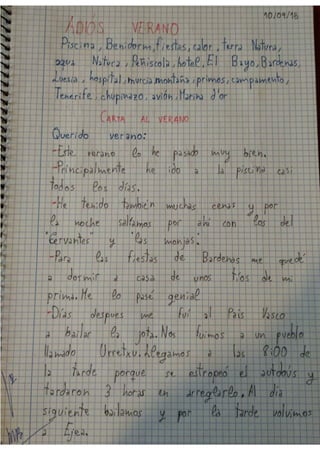 10/09/18
ADIOS VERANO
Piscina, Benidorm, fiestas, calor, terra Natura,
aqua Natura, Peñiscola, hotel, El Bayo, Bardenas,
Luesia, hospital, murcia montaña, primos, campamento,
Tenerife, chupinazo, avión, Marina d'or
CARTA AL VERANO
Querido verano:
-Este verano lo he pasado muy bien.
-Principalmente he ido a la piscina casi
todos los días.
-He tenido tambien muchas cenas y por
la noche saliamos por ahi con los del
"Cervantes" y "las monjas".
-Para las fiestas de Bardenas me quedé
a dormir a casa de unos tíos de mi
prima. Me lo pasé genial
-Días despues me fui al Pais Vasco
a bailar la jota. Nos fuimos a un pueblo
llamado Urretxu. Llegamos a las 8:00 de
la tarde porque se estropeó el autobús y
tardaron 3 horas en arreglarlo. Al dia
siguiente bailamos y por la tarde volvimos
a Ejea.